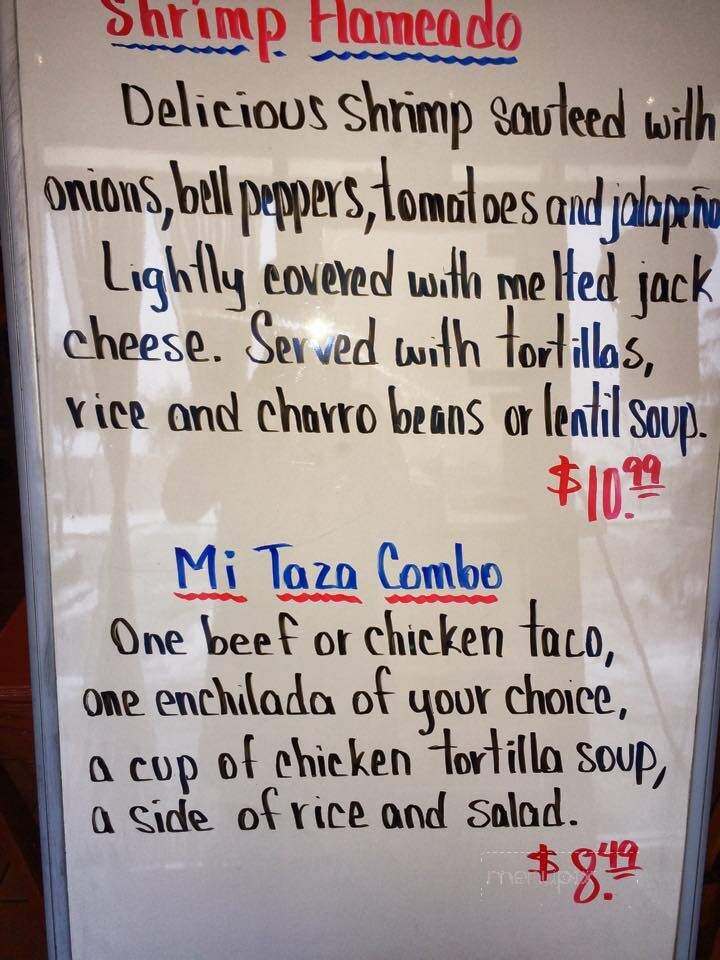 Shrimp Flameado
Delicious shrimp sauteed with
onions, bell peppers, tomatoes and jalapeño
Lightly covered with melted jack
cheese. Served with tortillas,
rice and charro beans or lentil soup.
$10.99
Mi Taza Combo
One beef or chicken taco,
one enchilada of your choice,
a cup of chicken tortilla soup,
a side of rice and salad.
$8.49